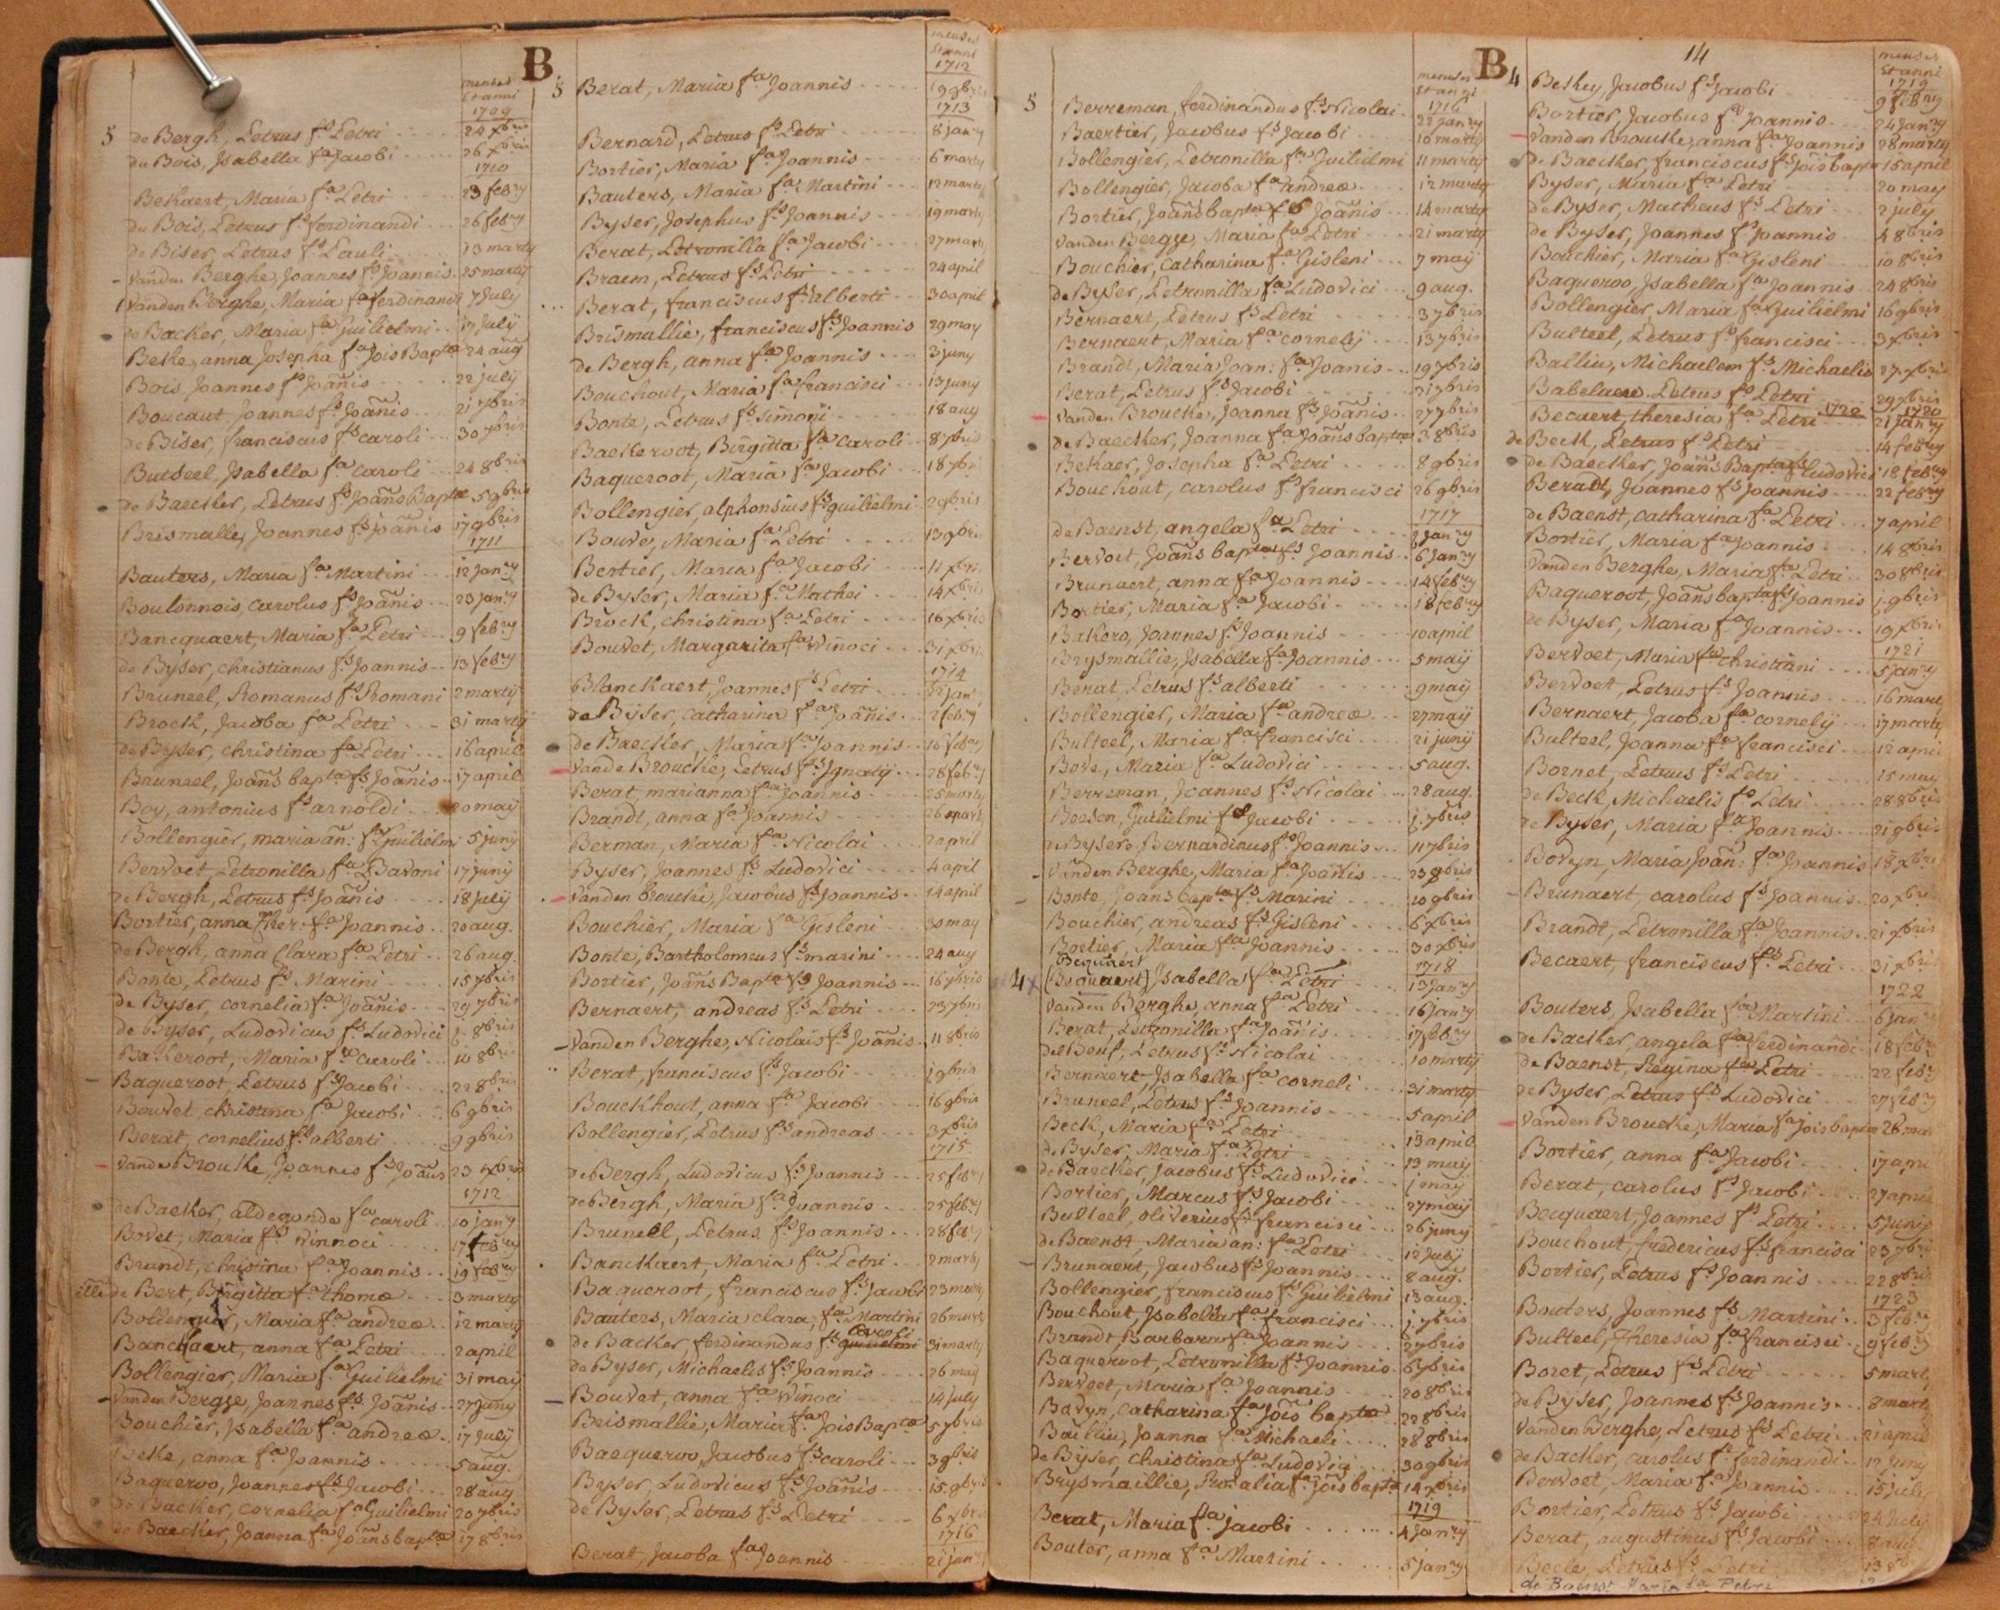 B
menses
et anni
1709
5 de Bergh, Petrus fs Petri 24 xbris
du Bois, Isabella fa Jacobi 26 xbris
1710
Bekaert, Maria fa Petri 23 febry
du Bois, Petrus fs ferdinandi 26 febry
de Biser, Petrus fs Pauli 23 marty
vanden Berghe, Joannes fs Joannis 25 marty
vanden Berghe, Maria fa ferdinandi 7 July
de Backer, Maria fa Guilielmi 17 July
Beke, anna Josepha fa Jois Bapta 24 aug
Bois, Joannes fs Joañis 22 july
Boucaut, Joannes fs Joañis 21 7bris
de Biser, franciscus fs caroli 30 7bris
Butseel, Isabella fa caroli 24 8bris
de Baecker, Petrus fs Joañs Baptæ 5 9bris
Brismalle, Joannes fs Joañis 17 9bris
1711
Bauters, Maria fa Martini 12 Janry
Boulonnois, carolus fs Joañis 23 janry
Bancquaert, Maria fa Petri 9 febry
de Byser, christianus fs Joannis 13 febry
Bruneel, Romanus fs Romani 2 marty
Brock, Jacoba fa Petri 31 marty
de Byser, christina fa Petri 16 april
Bruneel, Joañs bapta fs Joañis 17 april
Boy, antonius fs arnoldi 20 maÿ
Bollengier, maria añ: fa Guilielmi 5 juny
Bervoet, Petronilla fa Bavoni 17 juny
de Bergh, Petrus fs Joañis 18 july
Bortier, anna Ther: fa Joannis 20 aug.
de Bergh, anna Clara fa Petri 26 aug.
Bonte, Petrus fs Marini 15 7bris
de Byser, cornelia fa Joañis 29 7bris
de Byser, Ludovicus fs Ludovici 8bris
Bakeroot, Maria fa caroli 10 8bris
Baqueroot, Petrus fs Jacobi 22 8bris
Bouvet, christina fa Jacobi 6 9bris
Berat, cornelius fs alberti 9 9bris
vanden Broucke, Joannes fs Joañis 23 xbris
1712
de Backer, aldegonde fa caroli 10 janry
Bovet, Maria fa winnoci 17 febry
Brandt, christina fa Joannis 19 febry
de Bert, Birgitta fa Thomæ 3 marty
Bollengier, Maria fa andreæ 12 marty
Banckaert, anna fa Petri 2 april
Bollengier, Maria fa Guilielmi 31 may
vanden Bergse, Joannes fs Joañis 27 juny
Bouchier, Isabella fa andreæ 17 July
Beke, anna fa Joannis 5 aug.
Baqueroo, Joannes fs Jacobi 28 aug
de Backer, cornelia fa Guilielmi 20 7bris
de Baecker, Joanna fa Joañs bapta 17 8bris
menses
et anni
1712
5 Berat, Maria fa Joannis 19 9bris
1713
Bernard, Petrus fs Petri 8 janry
Bortier, Maria fa Joannis 6 marty
Bauters, Maria fa Martini 12 marty
Byser, Josephus fs Joannis 19 marty
Berat, Petronilla fa Jacobi 27 marty
Braem, Petrus fs Petri 24 april
Berat, franciscus fs alberti 30 april
Brismallie, franciscus fs Joannis 29 may
de Bergh, anna fa Joannis 3 juny
Bouchout, Maria fa francisci 13 juny
Bonte, Petrus fs Simoni 18 aug
Backeroot, Birgitta fa caroli 8 7bris
Baqueroot, Maria fa Jacobi 18 7bris
Bollengier, alphonsius fs guilielmi 2 9bris
Bouve, Maria fa Petri 13 9bris
Bertier, Maria fa Jacobi 11 xbris
de Byser, Maria fa Mathei 14 xbris
Brock, christina fa Petri 16 xbris
Bouvet, Margarita fa winoci 31 xbris
1714
Blanckaert, Joannes fs Petri 21 janry
de Byser, catharina fa Joañis 2 febry
de Baecker, Maria fa Joannis 16 febry
vande Broucke, Petrus fs Ignatÿ 28 febry
Berat, marianna fa Joannis 25 marty
Brandt, anna fa Joannis 26 marty
Berman, Maria fa Nicolai 2 april
Byser, Joannes fs Ludovici 4 april
vanden brouche, Jacobus fs Joannis 14 april
Bouchier, Maria fa Gisleni 30 may
Bonte, Bartholomeus fs marini 24 aug
Bortier, Joañs Bapta fs Joannis 16 7bris
Bernaert, andreas fs Petri 23 7bris
vanden Berghe, Nicolais fs Joañis 11 8bris
Berat, franciscus fs Jacobi 9bris
Bouckhout, anna fa Jacobi 16 9bris
Bollengier, Petrus fs andreas 3 xbris
1715
de Bergh, Ludovicus fs Joannis 25 febry
de Bergh, Maria fa Joannis 25 febry
Bruneel, Petrus fs Joannis 28 febry
Banckaert, Maria fa Petri 2 marty
Baqueroot, franciscus fs Jacobi 23 marty
Bauters, Maria clara, fa Martini 26 marty
de Backer, ferdinandus fs guilielmi 31 marty
de Byser, Michaelis fs Joannis 26 maÿ
Bouvet, anna fa Winoci 14 july
Brismallie, Maria fa Jois Baptæ 5 7bris
Bacqueroo, Jacobus fs caroli 3 9bris
Byser, Ludovicus fs Joañis 15 9bris
de Byser, Petrus fs Petri 6 xbris
1716
Berat, Jacoba fa Joannis 21 janry
B
menses
et anni
1716
5 Berreman, ferdinandus fs Nicolai 22 janry
Baertier, Jacobus fs Jacobi 10 marty
Bollengier, Petronilla fa Guilielmi 11 marty
Bollengier, Jacoba fa andreæ 12 marty
Bortier, Joañs bapta fs Joañis 14 marty
vanden Bergse, Maria fa Petri 21 marty
Bouchier, catharina fa Gisleni 7 maÿ
de Byser, Petronilla fa Ludovici 9 aug.
Bernaert, Petrus fs Petri 3 7bris
Bernaert, Maria fa cornelÿ 13 7bris
Brandt, Maria Joan: fa Joanis 19 7bris
Berat, Petrus fs Jacobi 21 7bris
vanden Broucke, Joanna fa Joañis 27 7bris
de Baecker, Joanna fa Joañs baptæ 3 8bris
Bekaer, Josepha fa Petri 8 9bris
Bouchout, carolus fs francisci 26 9bris
1717
de Baenst, angela fa Petri 2 janry
Bervoet, Joañs bapta fs Joannis 6 janry
Brunaert, anna fa Joannis 14 febry
Bortier, Maria fa Jacobi 18 febry
Bakoro, Joannes fs Joannis 10 april
Brysmallie, Isabella fa Joannis 5 maÿ
Berat, Petrus fs alberti 9 maÿ
Bollengier, Maria fa andreæ 27 maÿ
Bulteel, Maria fa francisci 21 junÿ
Bove, Maria fa Ludovici 5 aug.
Berreman, Joannes fs Nicolai 28 aug.
Beesen, Guilielmi fs Jacobi j. 7bris
de Byser, Bernardinus fs Joannis 11 7bris
vanden Berghe, Maria fa Joañis 23 9bris
Bonte, Joans bapta fs Marini 10 9bris
Bouchier, andreas fs Gisleni 6 xbris
Bortier, Maria fa Joannis 30 xbris
1718
Becquaert
4 x (Bequaert) Isabella fa Petri 13 janry
vanden Berghe, anna fa Petri 16 janry
Berat, Petronilla fa Joañis 17 febry
de Beuf, Petrus fs Nicolai 10 marty
Bernaert, Isabella fa corneli 31 marty
Bruneel, Petrus fs Joannis 5 april
Beck, Maria fa Petri 13 april
de Byser, Maria fa Petri 13 may
de Baecker, Jacobus fs Ludovici j may
Bortier, Marcus fs Jacobi 27 maÿ
Bulteel, oliverius fs francisci 26 juny
de Baenst, Maria an: fa Petri 12 july
Brunaert, Jacobus fs Joannis 8 aug.
Bollengier, franciscus fs Guilielmi 13 aug.
Bouchout, Isabella fa francisci j. 7bris
Brandt, Barbara fa Joannis 2 7bris
Baqueroot, Petronilla fa Joannis 6 7bris
Bervoet, Maria fa Joannis 20 8bris
Bavyn, catharina fa Jois bapta 22 8bris
Baillie, Joanna fa Michaeli 28 8bris
de Byser, christina fa Ludovici 30 9bris
Brysmaillie, Rosalia fa Jois bapta 14 xbris
1719
Berat, Maria fa Jacobi 4 Janry
Bouter, anna fa Martini 5 janry
14
menses
et anni
1719
4 Beskey, Jacobus fs Jacobi 9 febry
Bortier, Jacobus fs Joannis 24 janry
vanden Broucke, anna fa Joannis 28 marty
de Baecker, franciscus fs Jois bapta 15 april
Byser, Maria fa Petri 20 may
de Byser, Matheus fs Petri 2 july
de Byser, Joannes fs Joannis 4 8bris
Bouchier, Maria fa Gisleni 10 8bris
Baqueroo, Isabella fa Joannis 24 8bris
Bollengier, Maria fa Guilielmi 16 9bris
Bulteel, Petrus fs francisci 3 xbris
Balliu, Michaelem fs Michaelis 27 xbris
Babelaere, Petrus fs Petri 29 xbris
1720 1720
Becaert, theresia fa Petri 21 janry
de Beck, Petrus fs Petri 14 febry
de Baecker, Joañs Bapta fs Ludovici 18 febry
Beradt, Joannes fs Joannis 22 febry
de Baenst, catharina fa Petri 7 april
Bortier, Maria fa Joannis 14 8bris
vanden Berghe, Maria fa Petri 30 8bris
Baqueroot, Joañs bapta fs Joannis j. 9bris
de Byser, Maria fa Joannis 19 xbris
1721
Bervoet, Maria fa christiani 5 janry
Bervoet, Petrus fs Joannis 16 marty
Bernaert, Jacoba fa cornelÿ 17 marty
Bulteel, Joanna fa francisci 12 april
Bornet, Petrus fs Petri 15 may
de Beck, Michaelis fs Petri 28 8bris
de Byser, Maria fa Joannis 21 9bris
Bovyn, Maria Joañ: fa Joannis 18 xbris
Brunaert, carolus fs Joannis 20 xbris
Brandt, Petronilla fa Joannis 21 xbris
Becaert, franciscus fs Petri 31 xbris
1722
Bouters, Isabella fa Martini 6 janry
de Backer, angela fa ferdinandi 18 febry
de Baenst, Regina fa Petri 22 febry
de Byser, Petrus fs Ludovici 27 febry
vanden Broucke, Maria fa Jois bapta 26 mar
Bortier, anna fa Jacobi 17 apri
Berat, carolus fs Jacobi 27 april
Becquaert, Joannes fs Petri 5 juny
Bouchout, fredericus fs francisci 23 7bris
Bortier, Petrus fs Joannis 22 8bris
1723
Bouters, Joannes fs Martini 3 febry
Bulteel, Theresia fa francisci 9 febry
Boret, Petrus fs Petri 5 marty
de Byser, Joannes fs Joannis 8 marty
vanden Berghe, Petrus fs Petri 21 april
de Backer, carolus fs ferdinandi 12 juny
Bervoet, Maria fa Joannis 15 july
Bortier, Petrus fs Jacobi 24 july
Berat, augustinus fs Jacobi 8 aug.
Becle, Petrus fs Petri 13 8b
de Baenst Maria fa Petri